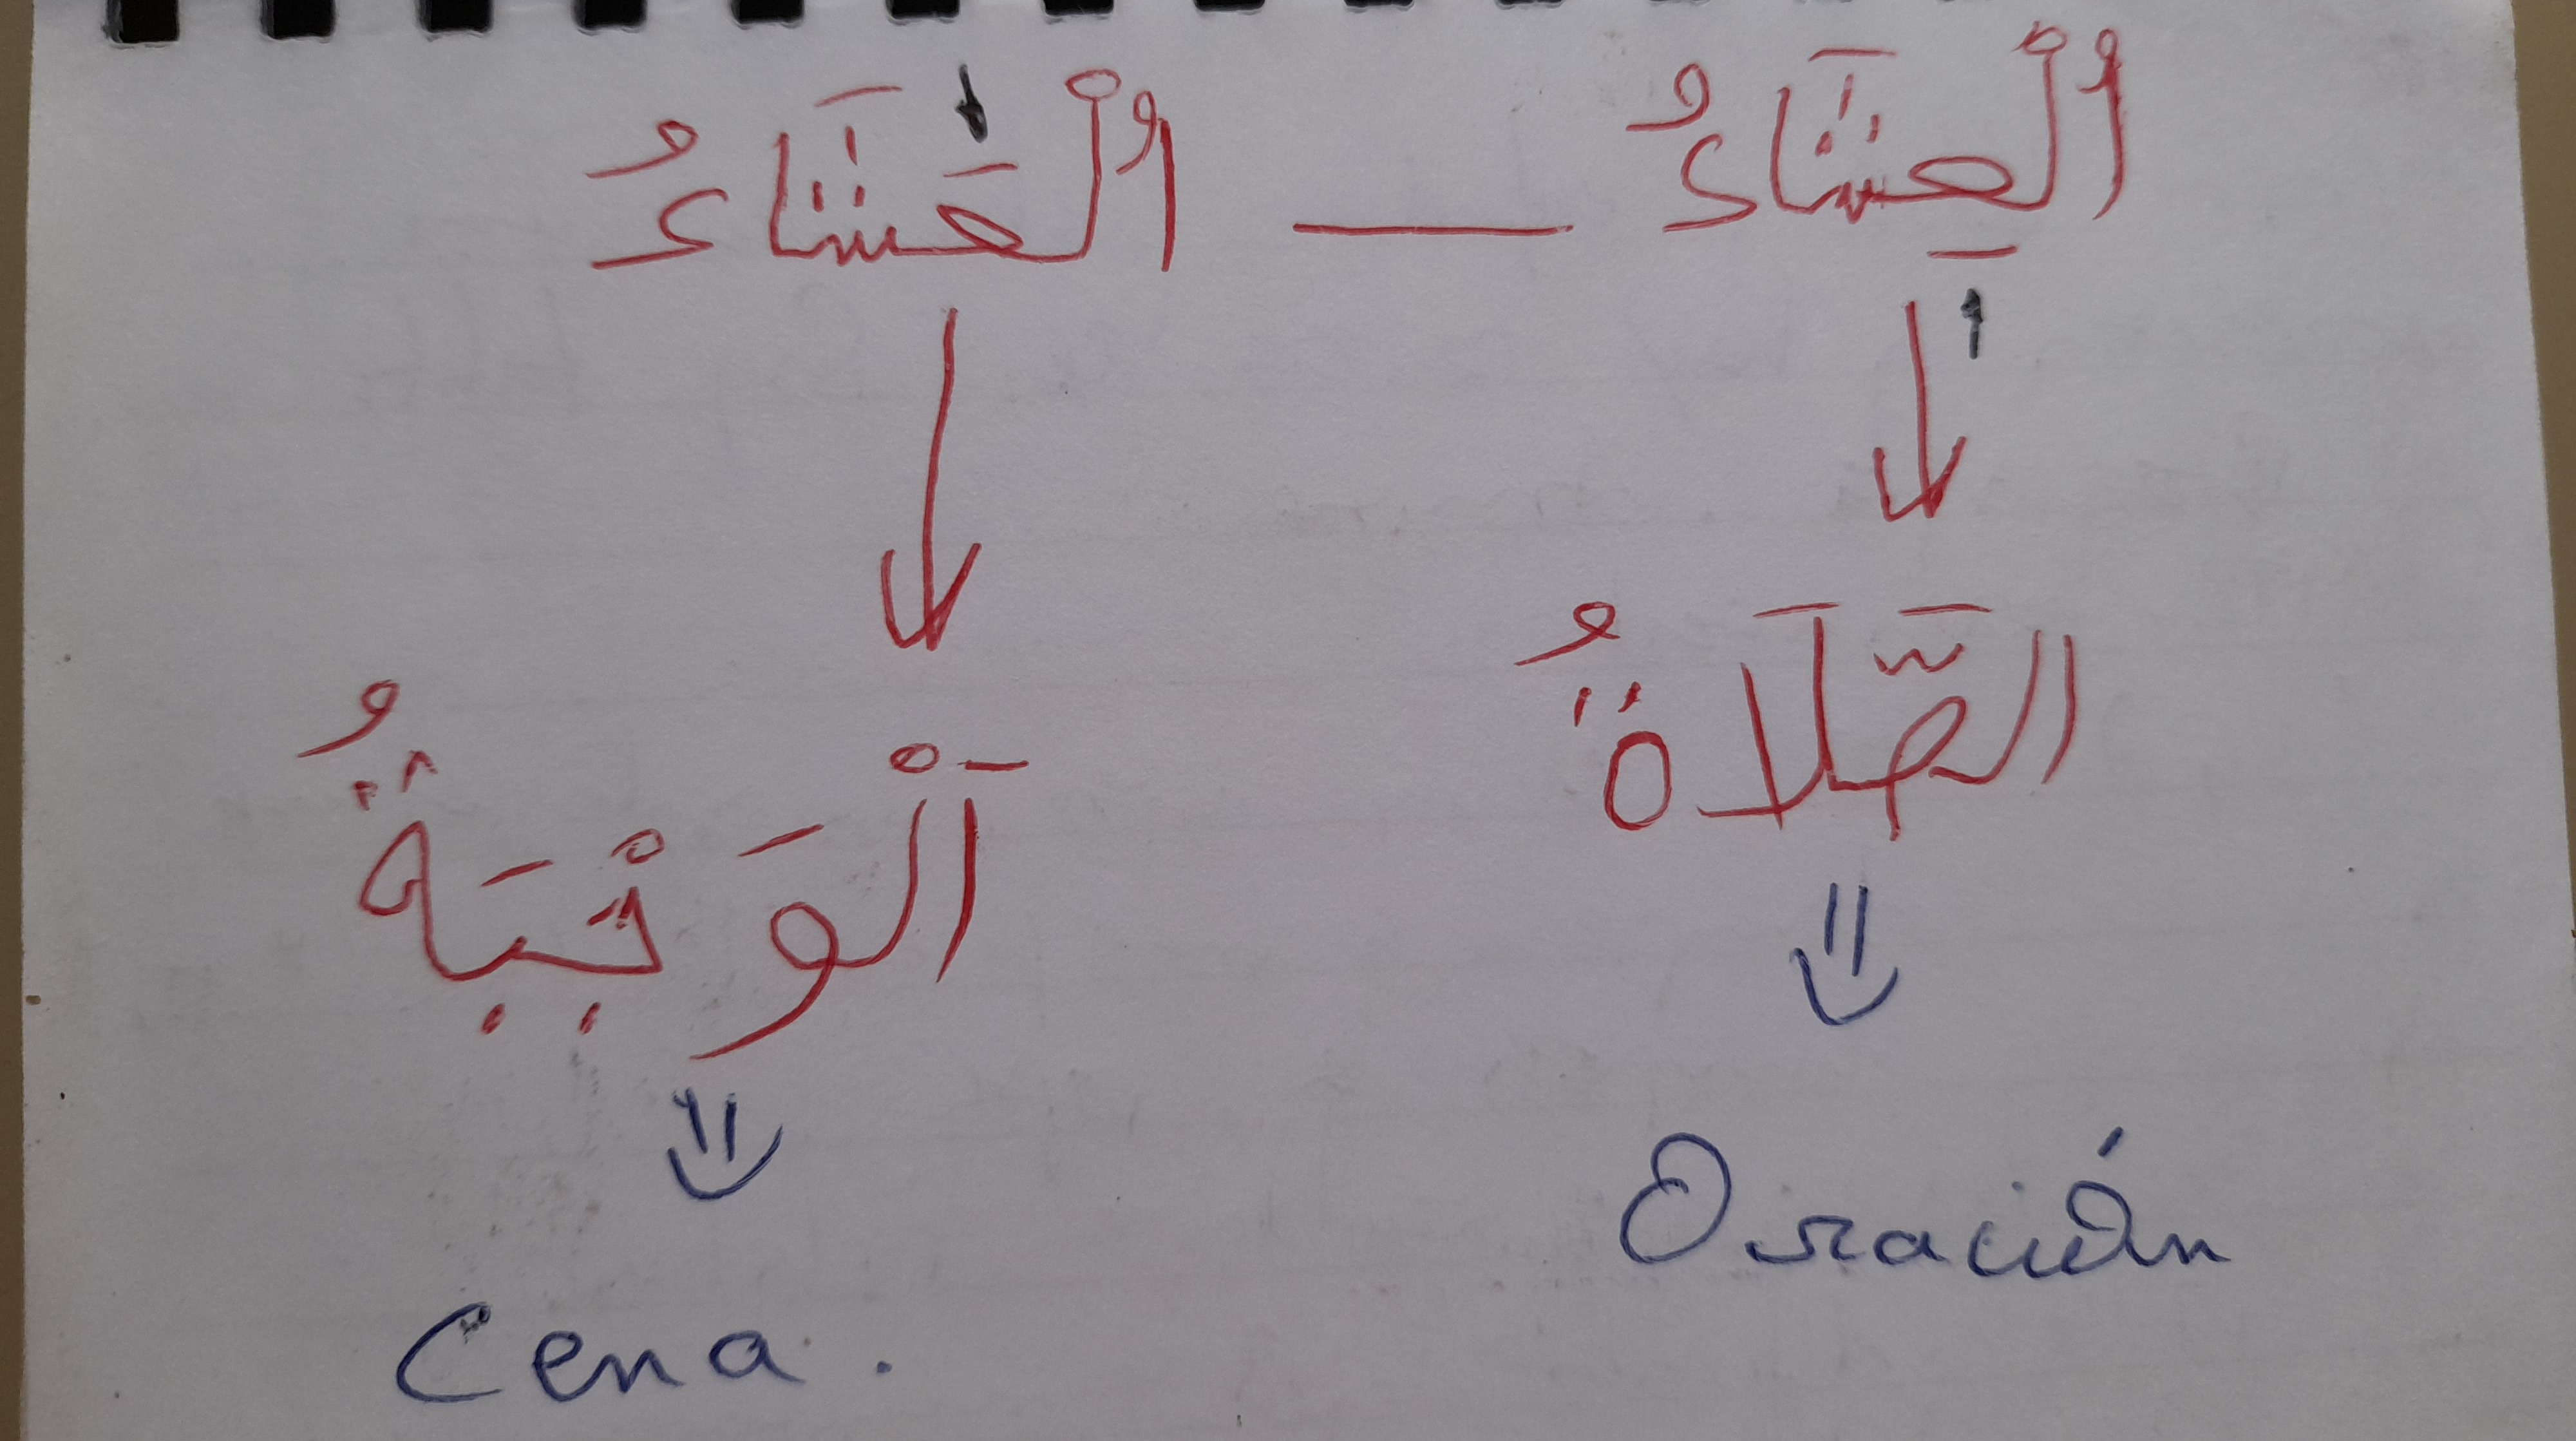 اُلْعِشَاءُ — اُلْعَشَاءُ
الصَّلَاةُ
اَلْوَجْبَةُ
Oración
Cena.